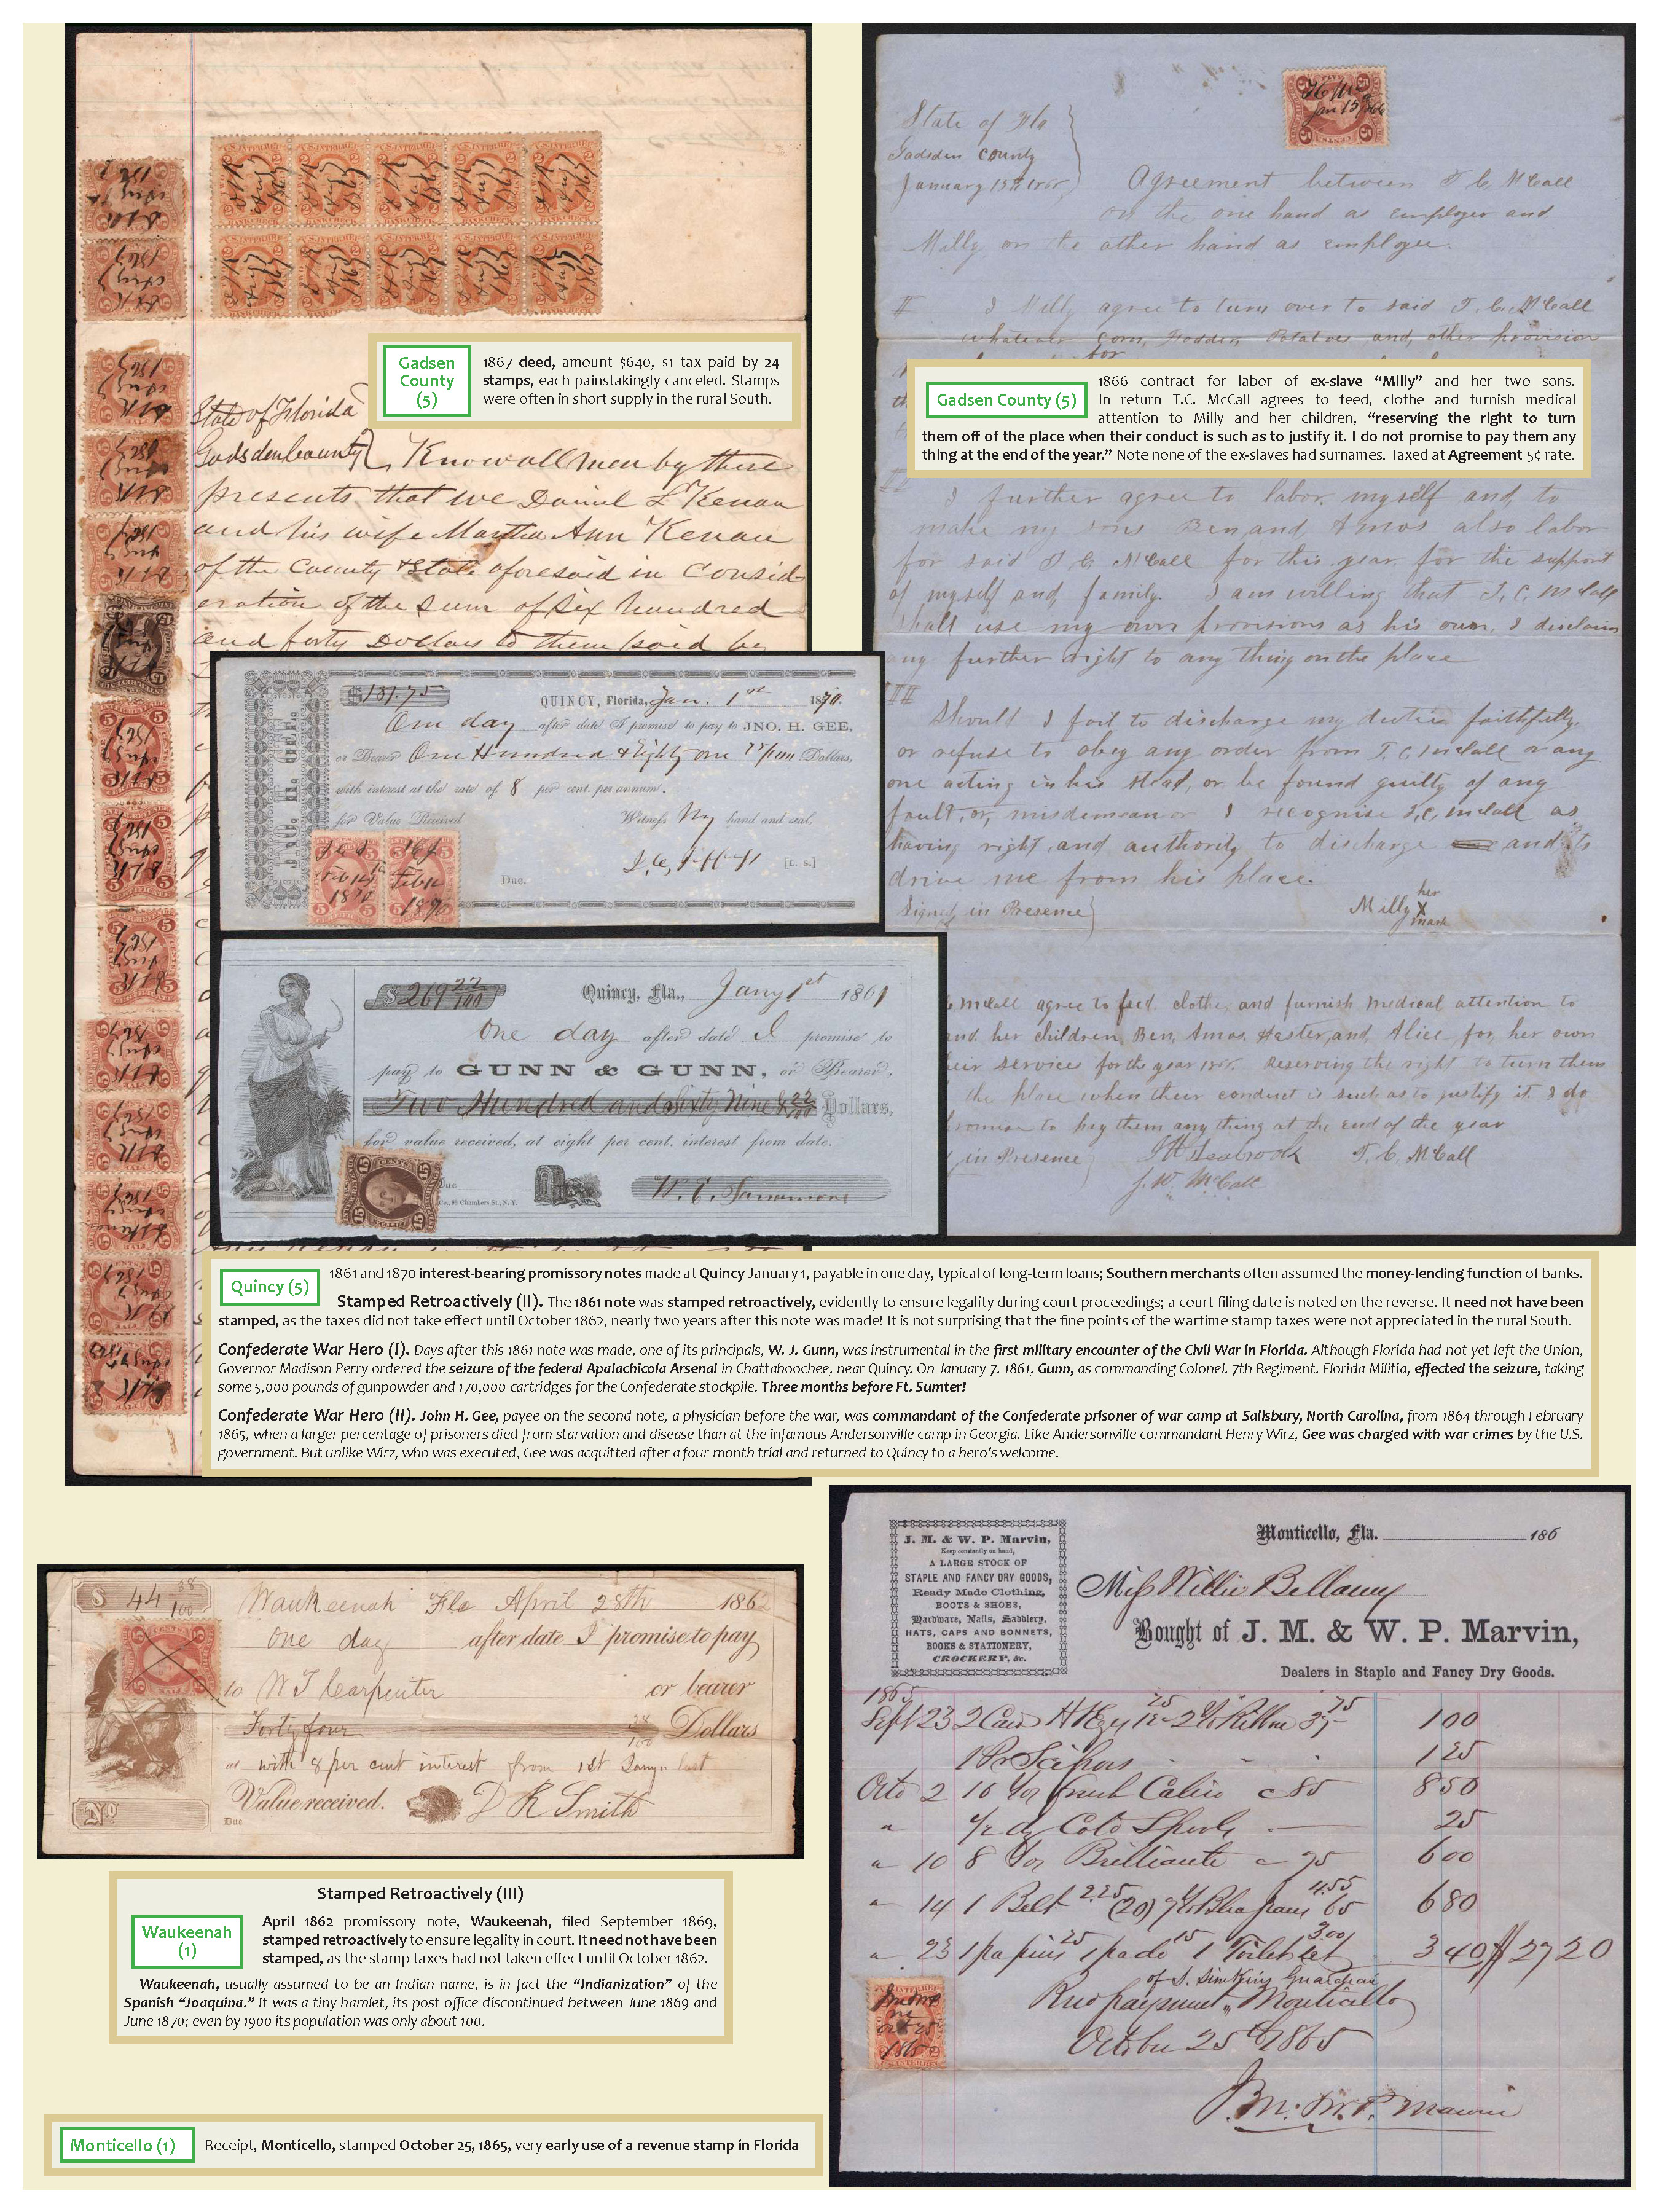 Gadsen
County
(5)
1867 deed, amount $640, $1 tax paid by 24
stamps, each painstakingly canceled. Stamps
were often in short supply in the rural South.
State of Florida
Gadsden County Know all men by these
presents that we Daniel L Kenan
and his wife Martha Ann Kenan
of the County & State aforesaid in consid
eration of the sum of Six hundred
and forty Dollars to them paid by
Jan 15 1866
State of Fla
Gadsden County
January 15th 1866
Agreement between T C McCall
on the one hand as employer and
Milly on the other hand as employee.
I I Milly agree to turn over to said T. C. McCall
whatever Corn, Fodder, Potatoes and, other provision
for
Gadsen County (5)
1866 contract for labor of ex-slave “Milly” and her two sons.
In return T.C. McCall agrees to feed, clothe and furnish medical
attention to Milly and her children, “reserving the right to turn
them off of the place when their conduct is such as to justify it. I do not promise to pay them any
thing at the end of the year.” Note none of the ex-slaves had surnames. Taxed at Agreement 5¢ rate.
I further agree to labor, myself and, to
make my sons Ben, and Amos also labor
for said T. C. McCall for this year for the support
of myself and, family. I am willing that T. C. McCall
shall use my own provisions as his own, I disclaim
any further right to any thing on the place
III
Should I fail to discharge my duties faithfully
or refuse to obey any order from T. C. McCall or any
one acting in his stead, or be found guilty of any
fault, or, misdemeanor I recognise T, C, McCall as
having right, and authority to discharge and to
drive me from his place.
Signed in Presence
Milly her X mark
McCall agree to feed clothe, and furnish medical attention to
and her children, Ben, Amos, Hester, and, Alice for her own
their services for the year 1866. Reserving the right to turn them
the place when their conduct is such as to justify it I do
promise to pay them any thing at the end of the year
in Presence J H Seabrook T. C. McCall
J. W. McCall
$181.75
QUINCY, Florida, Jan. 1st 1870.
One day after date I promise to pay to JNO. H. GEE,
or Bearer One Hundred & Eighty one 75/100 Dollars,
with interest at the rate of 8 per cent. per annum.
for Value Received Witness My hand and seal,
[L. S.]
Due.
$269 22/100 Quincy, Fla., Jany 1st 1861
One day after date I promise to
pay to GUNN & GUNN, or Bearer,
Two Hundred and Sixty Nine & 22/100 Dollars,
for value received, at eight per cent. interest from date.
Due
Quincy (5)
1861 and 1870 interest-bearing promissory notes made at Quincy January 1, payable in one day, typical of long-term loans; Southern merchants often assumed the money-lending function of banks.
Stamped Retroactively (II). The 1861 note was stamped retroactively, evidently to ensure legality during court proceedings; a court filing date is noted on the reverse. It need not have been
stamped, as the taxes did not take effect until October 1862, nearly two years after this note was made! It is not surprising that the fine points of the wartime stamp taxes were not appreciated in the rural South.
Confederate War Hero (I). Days after this 1861 note was made, one of its principals, W. J. Gunn, was instrumental in the first military encounter of the Civil War in Florida. Although Florida had not yet left the Union,
Governor Madison Perry ordered the seizure of the federal Apalachicola Arsenal in Chattahoochee, near Quincy. On January 7, 1861, Gunn, as commanding Colonel, 7th Regiment, Florida Militia, effected the seizure, taking
some 5,000 pounds of gunpowder and 170,000 cartridges for the Confederate stockpile. Three months before Ft. Sumter!
Confederate War Hero (II). John H. Gee, payee on the second note, a physician before the war, was commandant of the Confederate prisoner of war camp at Salisbury, North Carolina, from 1864 through February
1865, when a larger percentage of prisoners died from starvation and disease than at the infamous Andersonville camp in Georgia. Like Andersonville commandant Henry Wirz, Gee was charged with war crimes by the U.S.
government. But unlike Wirz, who was executed, Gee was acquitted after a four-month trial and returned to Quincy to a hero’s welcome.
$ 44 38/100 Waukeenah Fla April 28th 1862
One day after date I promise to pay
to W T Carpenter or bearer
Forty four 38/100 Dollars
with 8 per cent interest from 1st Jany last
Value received. D R Smith
No
Due
Stamped Retroactively (III)
Waukeenah
(1)
April 1862 promissory note, Waukeenah, filed September 1869,
stamped retroactively to ensure legality in court. It need not have been
stamped, as the stamp taxes had not taken effect until October 1862.
Waukeenah, usually assumed to be an Indian name, is in fact the “Indianization” of the
Spanish “Joaquina.” It was a tiny hamlet, its post office discontinued between June 1869 and
June 1870; even by 1900 its population was only about 100.
Monticello (1)
Receipt, Monticello, stamped October 25, 1865, very early use of a revenue stamp in Florida
J. M. & W. P. Marvin,
Keep constantly on hand,
A LARGE STOCK OF
STAPLE AND FANCY DRY GOODS,
Ready Made Clothing,
BOOTS & SHOES,
Hardware, Nails, Saddlery,
HATS, CAPS AND BONNETS,
BOOKS & STATIONERY,
CROCKERY, &c.
Monticello, Fla. 186
Miss Willie Bellamy
Bought of J. M. & W. P. Marvin,
Dealers in Staple and Fancy Dry Goods.
1865
Sept 23 2 Cards H & Eys 25 2 Yds Ribbon 75 1 00
1 Pr Scissors 1 25
Octo 2 10 Yds Calico 85 8 50
1/2 dz 25
10 8 Yds Brilliante 75 6 00
14 1 Belt 2.25 4.55 65 6 80
23 1 pa pins 25 15 1 Toilet set 3.00 3 40 $27 20
of S. Simkins Guardian
Recd payment, Monticello
October 25th 1865
J. M. & W. P. Marvin